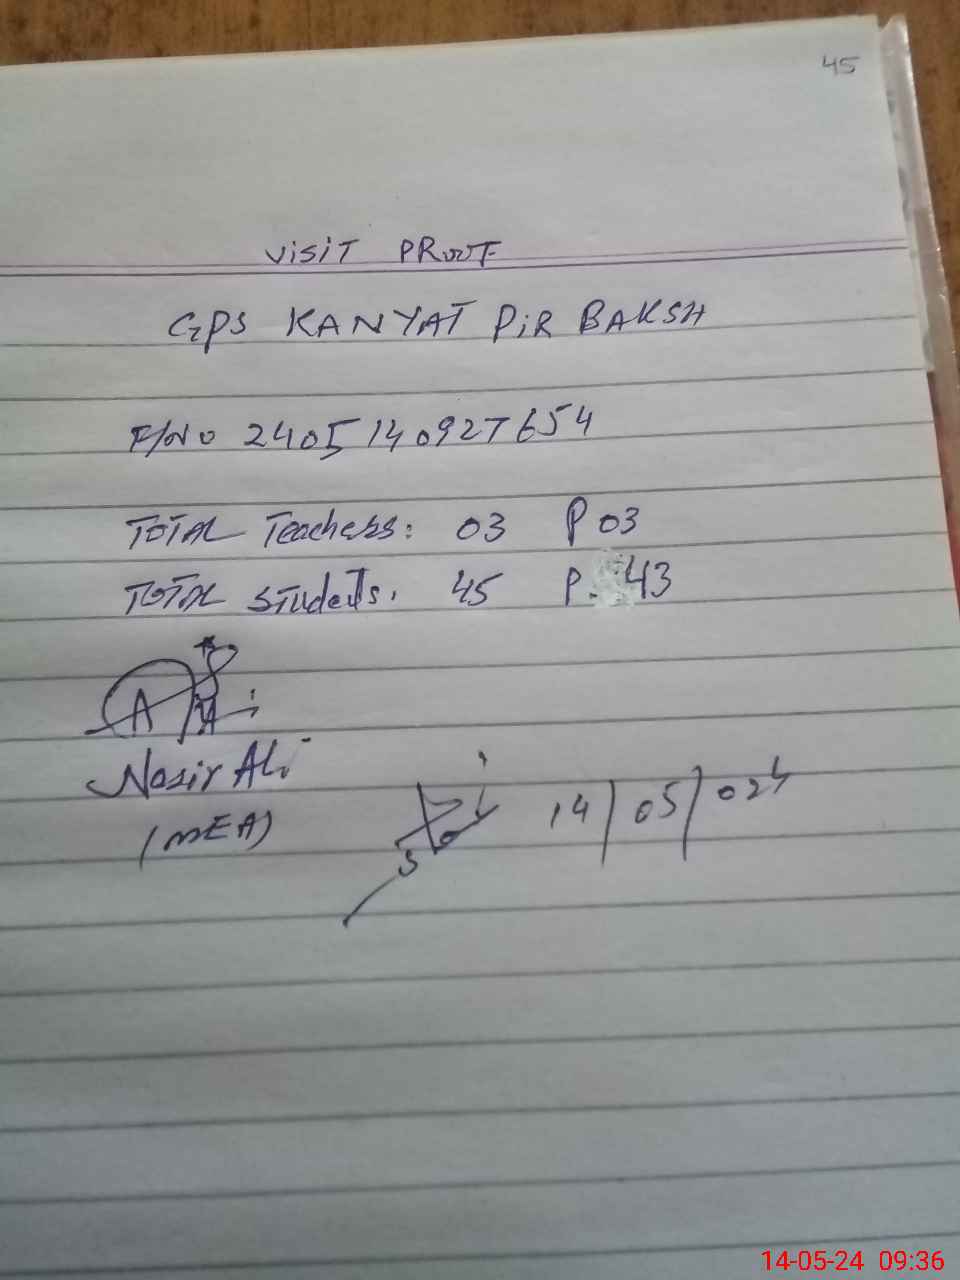 45
VISIT PROOF
GPS KANYAT PIR BAKSH
F/No 2405140927654
TOTAL Teachers: 03 P 03
TOTAL Students. 45 P. 43
Nasir Ali
(MEA)
14/05/024
14-05-24 09:36